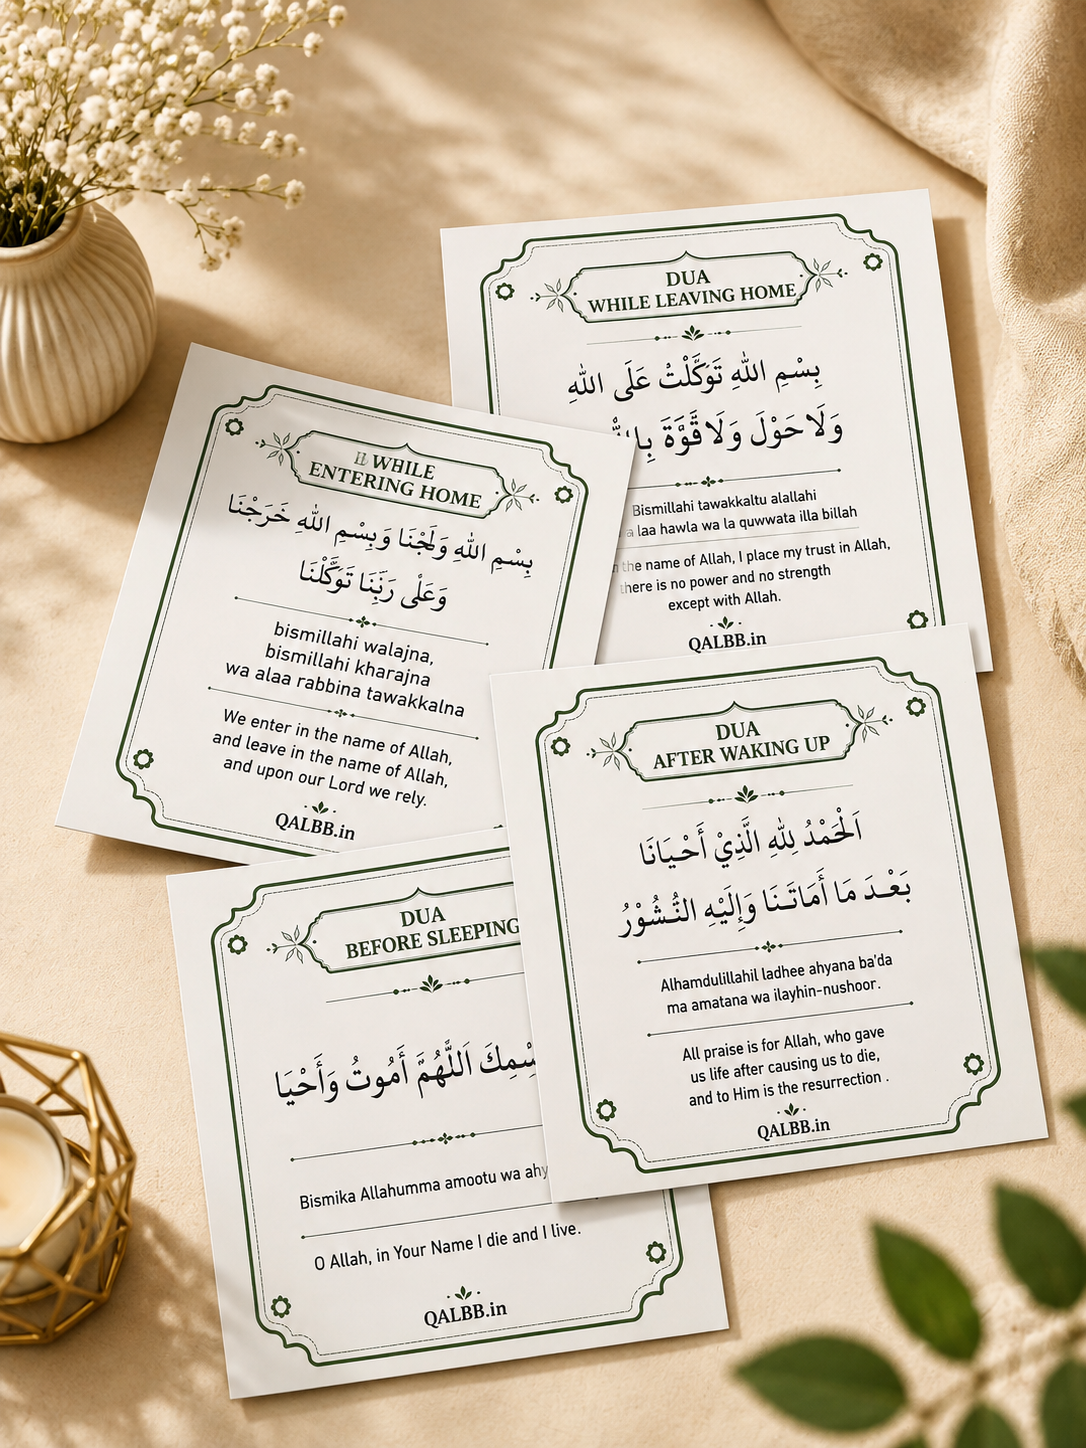 DUA
WHILE LEAVING HOME
بِسْمِ اللهِ تَوَكَّلْتُ عَلَى اللهِ
وَلَا حَوْلَ وَلَا قُوَّةَ
Bismillahi tawakkaltu alallahi
laa hawla wa la quwwata illa billah
the name of Allah, I place my trust in Allah,
there is no power and no strength
except with Allah.
QALBB.in
WHILE
ENTERING HOME
بِسْمِ اللهِ وَلَجْنَا وَبِسْمِ اللهِ خَرَجْنَا
وَعَلَى رَبِّنَا تَوَكَّلْنَا
bismillahi walajna,
bismillahi kharajna
wa alaa rabbina tawakkalna
We enter in the name of Allah,
and leave in the name of Allah,
and upon our Lord we rely.
QALBB.in
DUA
AFTER WAKING UP
اَلْحَمْدُ لِلّٰهِ الَّذِيْ أَحْيَانَا
بَعْدَ مَا أَمَاتَنَا وَإِلَيْهِ النُّشُوْرُ
Alhamdulillahil ladhee ahyana ba'da
ma amatana wa ilayhin-nushoor.
All praise is for Allah, who gave
us life after causing us to die,
and to Him is the resurrection .
QALBB.in
DUA
BEFORE SLEEPING
اَللَّهُمَّ أَمُوتُ وَأَحْيَا
Bismika Allahumma amootu wa
O Allah, in Your Name I die and I live.
QALBB.in